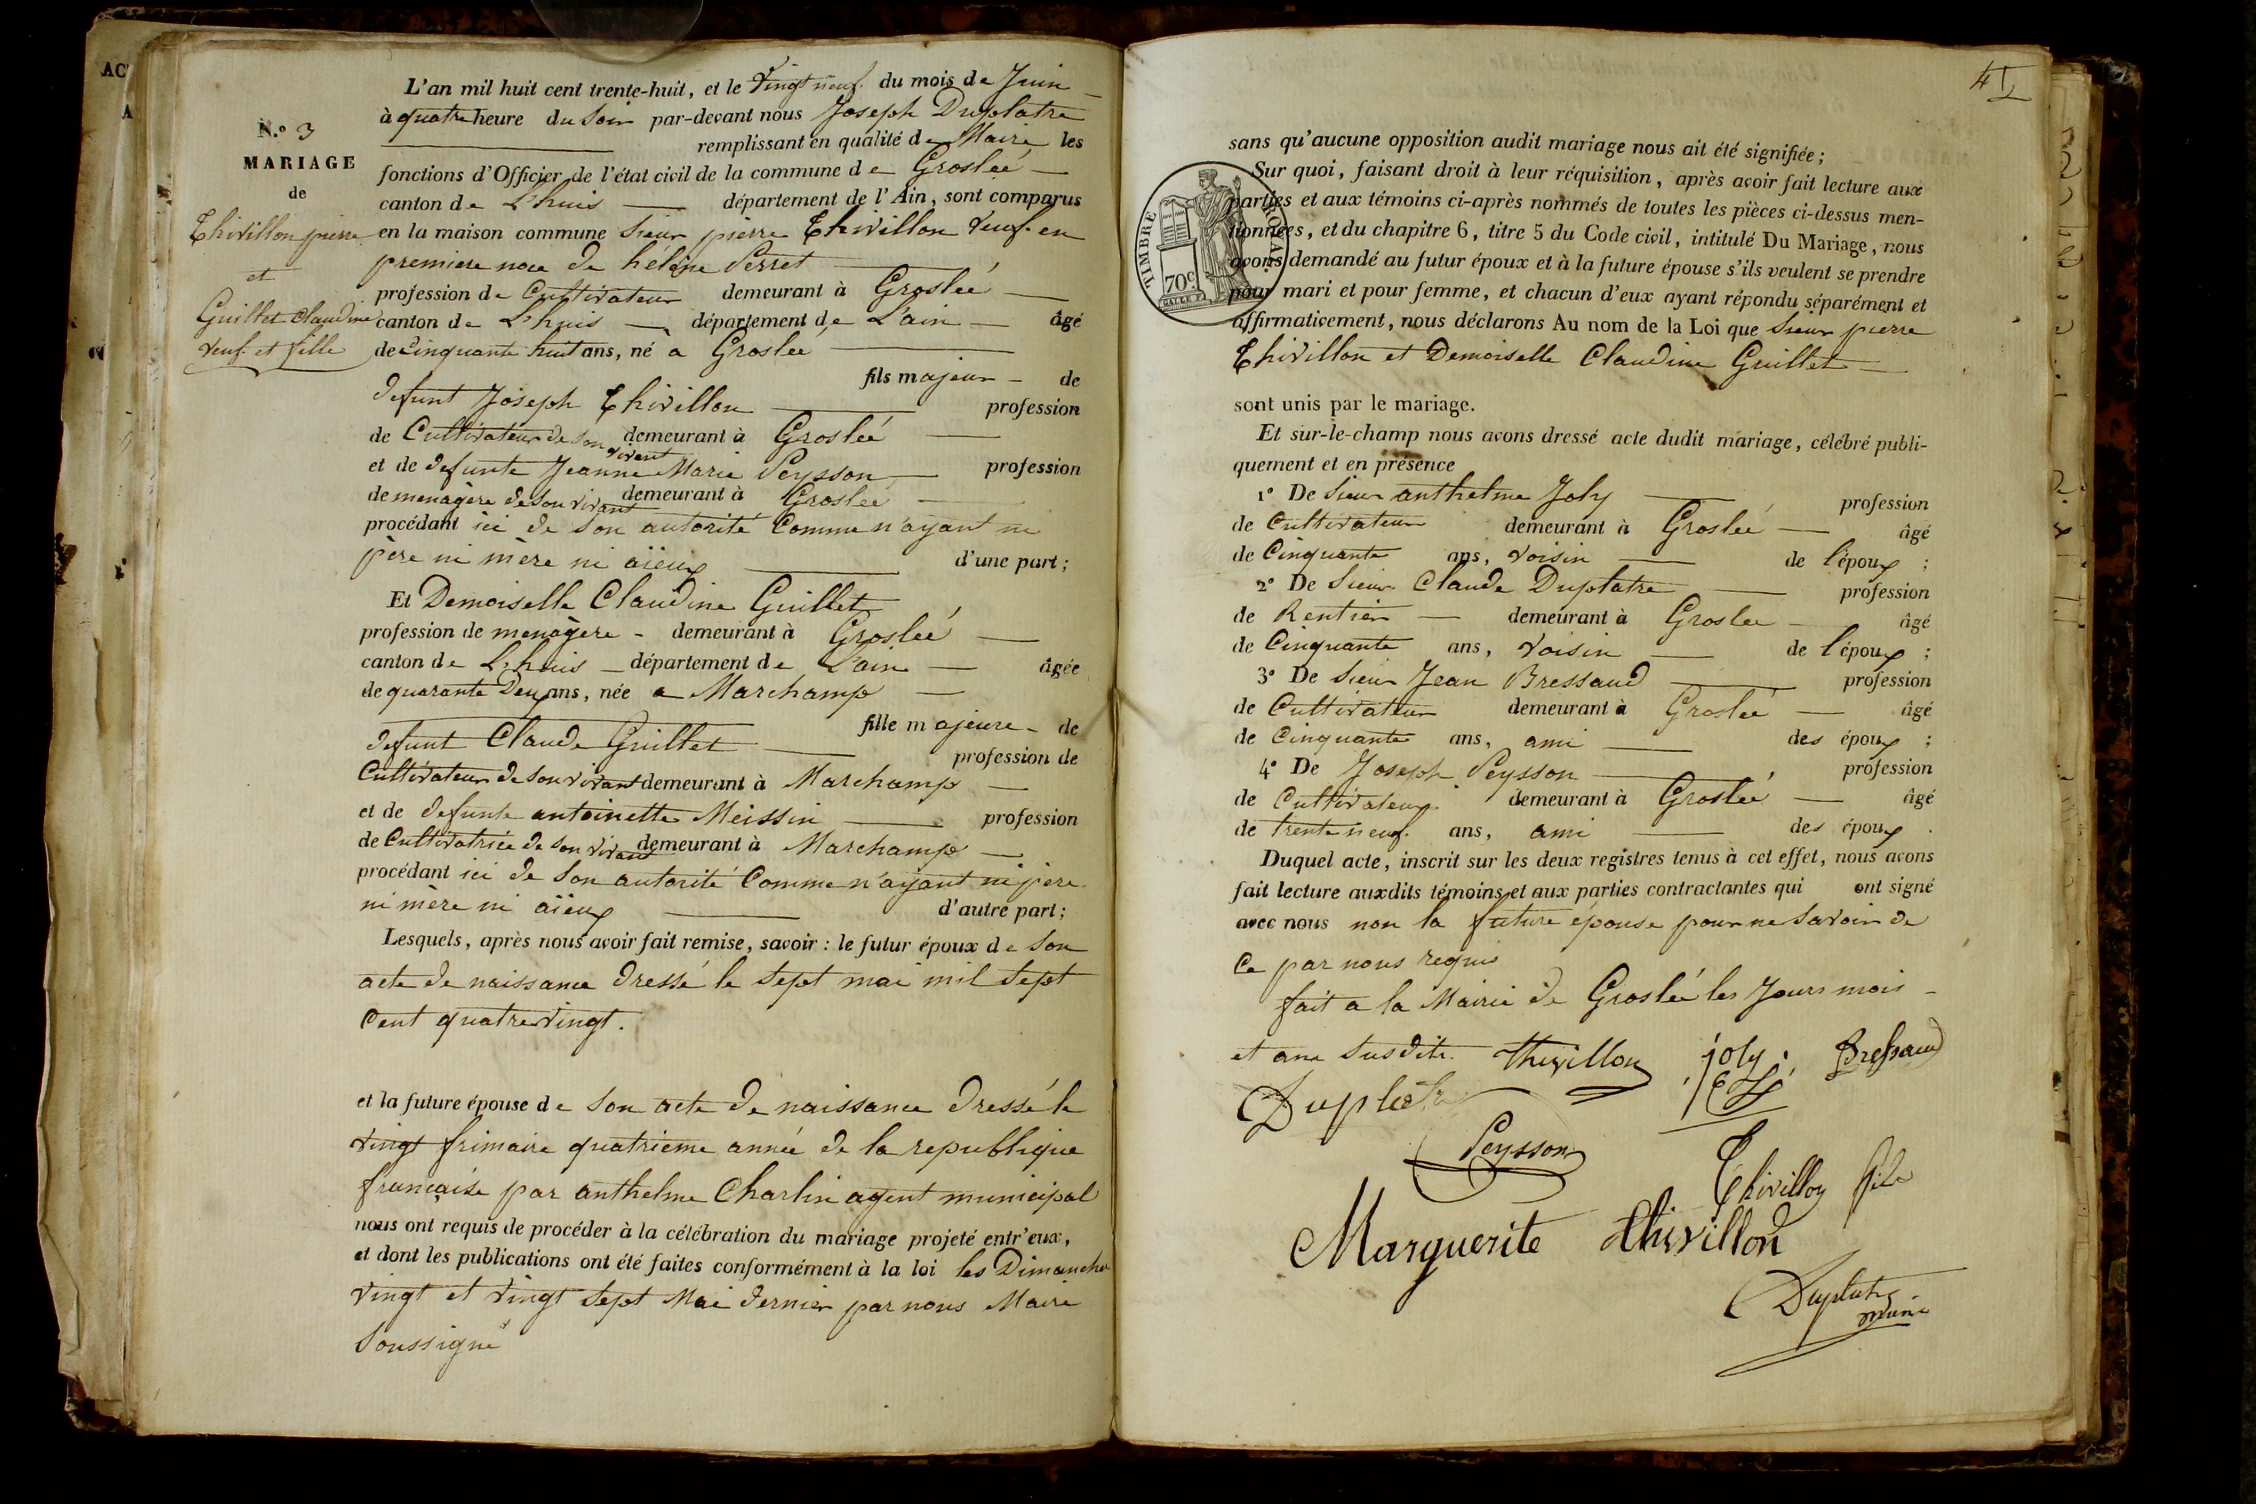 N.º 3
MARIAGE
de
Thivillon pierre
et
Guillet Claudine
veuf et fille
L'an mil huit cent trente-huit, et le vingt neuf du mois de Juin
à quatre heure du soir par-devant nous Joseph Duplatre
remplissant en qualité de Maire les
fonctions d'Officier de l'état civil de la commune de Groslée
canton de L'huis département de l'Ain, sont comparus
en la maison commune Sieur pierre Thivillon veuf en
premiere noce de hélène Perret
profession de Cultivateur demeurant à Groslée
canton de L'huis département de L'ain âgé
de Cinquante huit ans, né a Groslée
fils majeur de
defunt Joseph Thivillon profession
de Cultivateur de son vivant demeurant à Groslée
et de defunte Jeanne Marie Peysson profession
de menagère de son vivant demeurant à Groslée
procédant ici de son autorité Comme n'ayant ni
père ni mère ni aïeux d'une part;
Et Demoiselle Claudine Guillet
profession de menagère demeurant à Groslée
canton de L'huis département de L'ain âgée
de quarante Deux ans, née a Marchamp
fille majeure de
defunt Claude Guillet profession de
Cultivateur de son vivant demeurant à Marchamp
et de defunte antoinette Meissin profession
de Cultivatrice de son vivant demeurant à Marchamp
procédant ici de son autorité Comme n'ayant ni père
ni mère ni aïeux d'autre part;
Lesquels, après nous avoir fait remise, savoir: le futur époux de son
acte de naissance dressé le sept mai mil sept
Cent quatre vingt.
et la future épouse de son acte de naissance dressé le
vingt frimaire quatrieme année de la republique
française par anthelme Charlin agent municipal
nous ont requis de procéder à la célébration du mariage projeté entr'eux,
et dont les publications ont été faites conformément à la loi les Dimanches
vingt et vingt sept Mai dernier par nous Maire
Soussigné
41
TIMBRE ROYAL
70c.
sans qu'aucune opposition audit mariage nous ait été signifiée;
Sur quoi, faisant droit à leur réquisition, après avoir fait lecture aux
parties et aux témoins ci-après nommés de toutes les pièces ci-dessus men-
tionnées, et du chapitre 6, titre 5 du Code civil, intitulé Du Mariage, nous
avons demandé au futur époux et à la future épouse s'ils veulent se prendre
pour mari et pour femme, et chacun d'eux ayant répondu séparément et
affirmativement, nous déclarons Au nom de la Loi que Sieur pierre
Thivillon et Demoiselle Claudine Guillet
sont unis par le mariage.
Et sur-le-champ nous avons dressé acte dudit mariage, célébré publi-
quement et en présence
1º De Sieur anthelme Joly profession
de Cultivateur demeurant à Groslée âgé
de Cinquante ans, voisin de l'époux;
2º De Sieur Claude Duplatre profession
de Rentier demeurant à Groslee âgé
de Cinquante ans, voisin de l'époux;
3º De Sieur Jean Bressaud profession
de Cultivateur demeurant à Groslée âgé
de Cinquante ans, ami des époux;
4º De Joseph Peysson profession
de Cultivateur demeurant à Groslée âgé
de trente neuf ans, ami des époux.
Duquel acte, inscrit sur les deux registres tenus à cet effet, nous avons
fait lecture auxdits témoins et aux parties contractantes qui ont signé
avec nous non la future épouse pour ne Savoir de
Ce par nous requis
fait a la Mairie de Groslée les Jours mois
et ans susdits. thivillon joly Bressaud
Duplatre
Peysson
Thivillon fils
Marguerite thivillon
Duplatre
maire